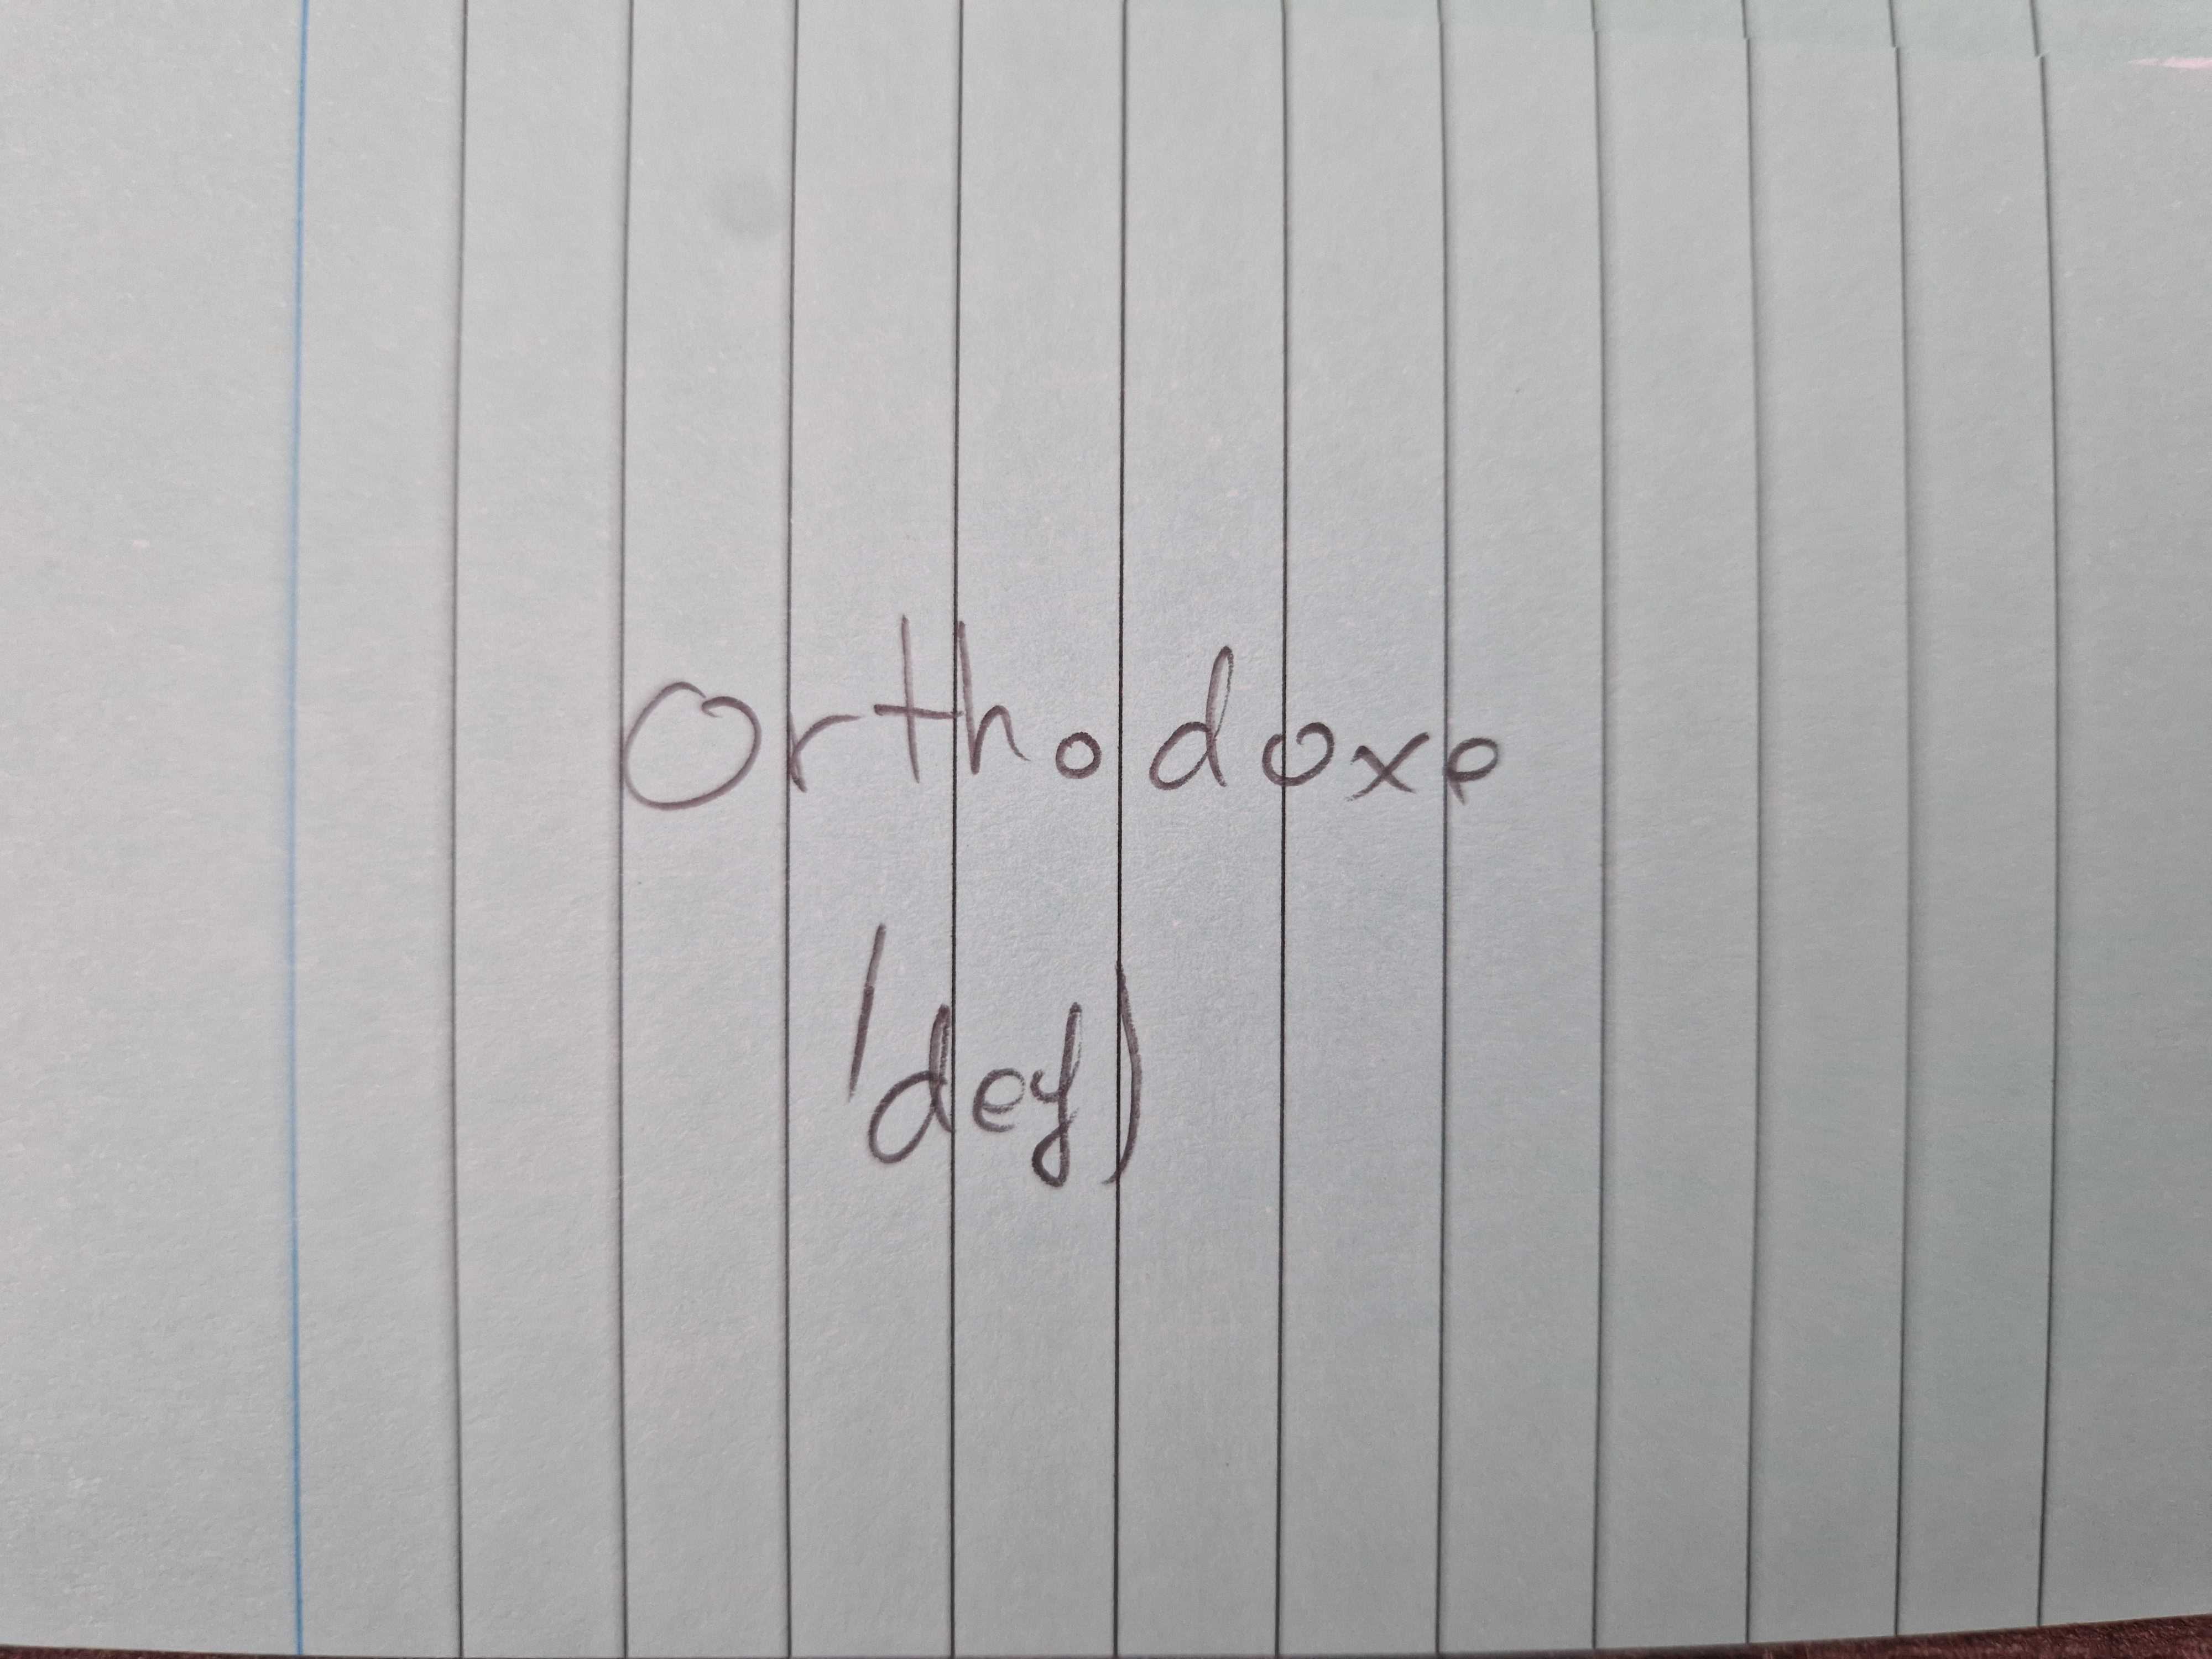 Orthodoxe
(def)